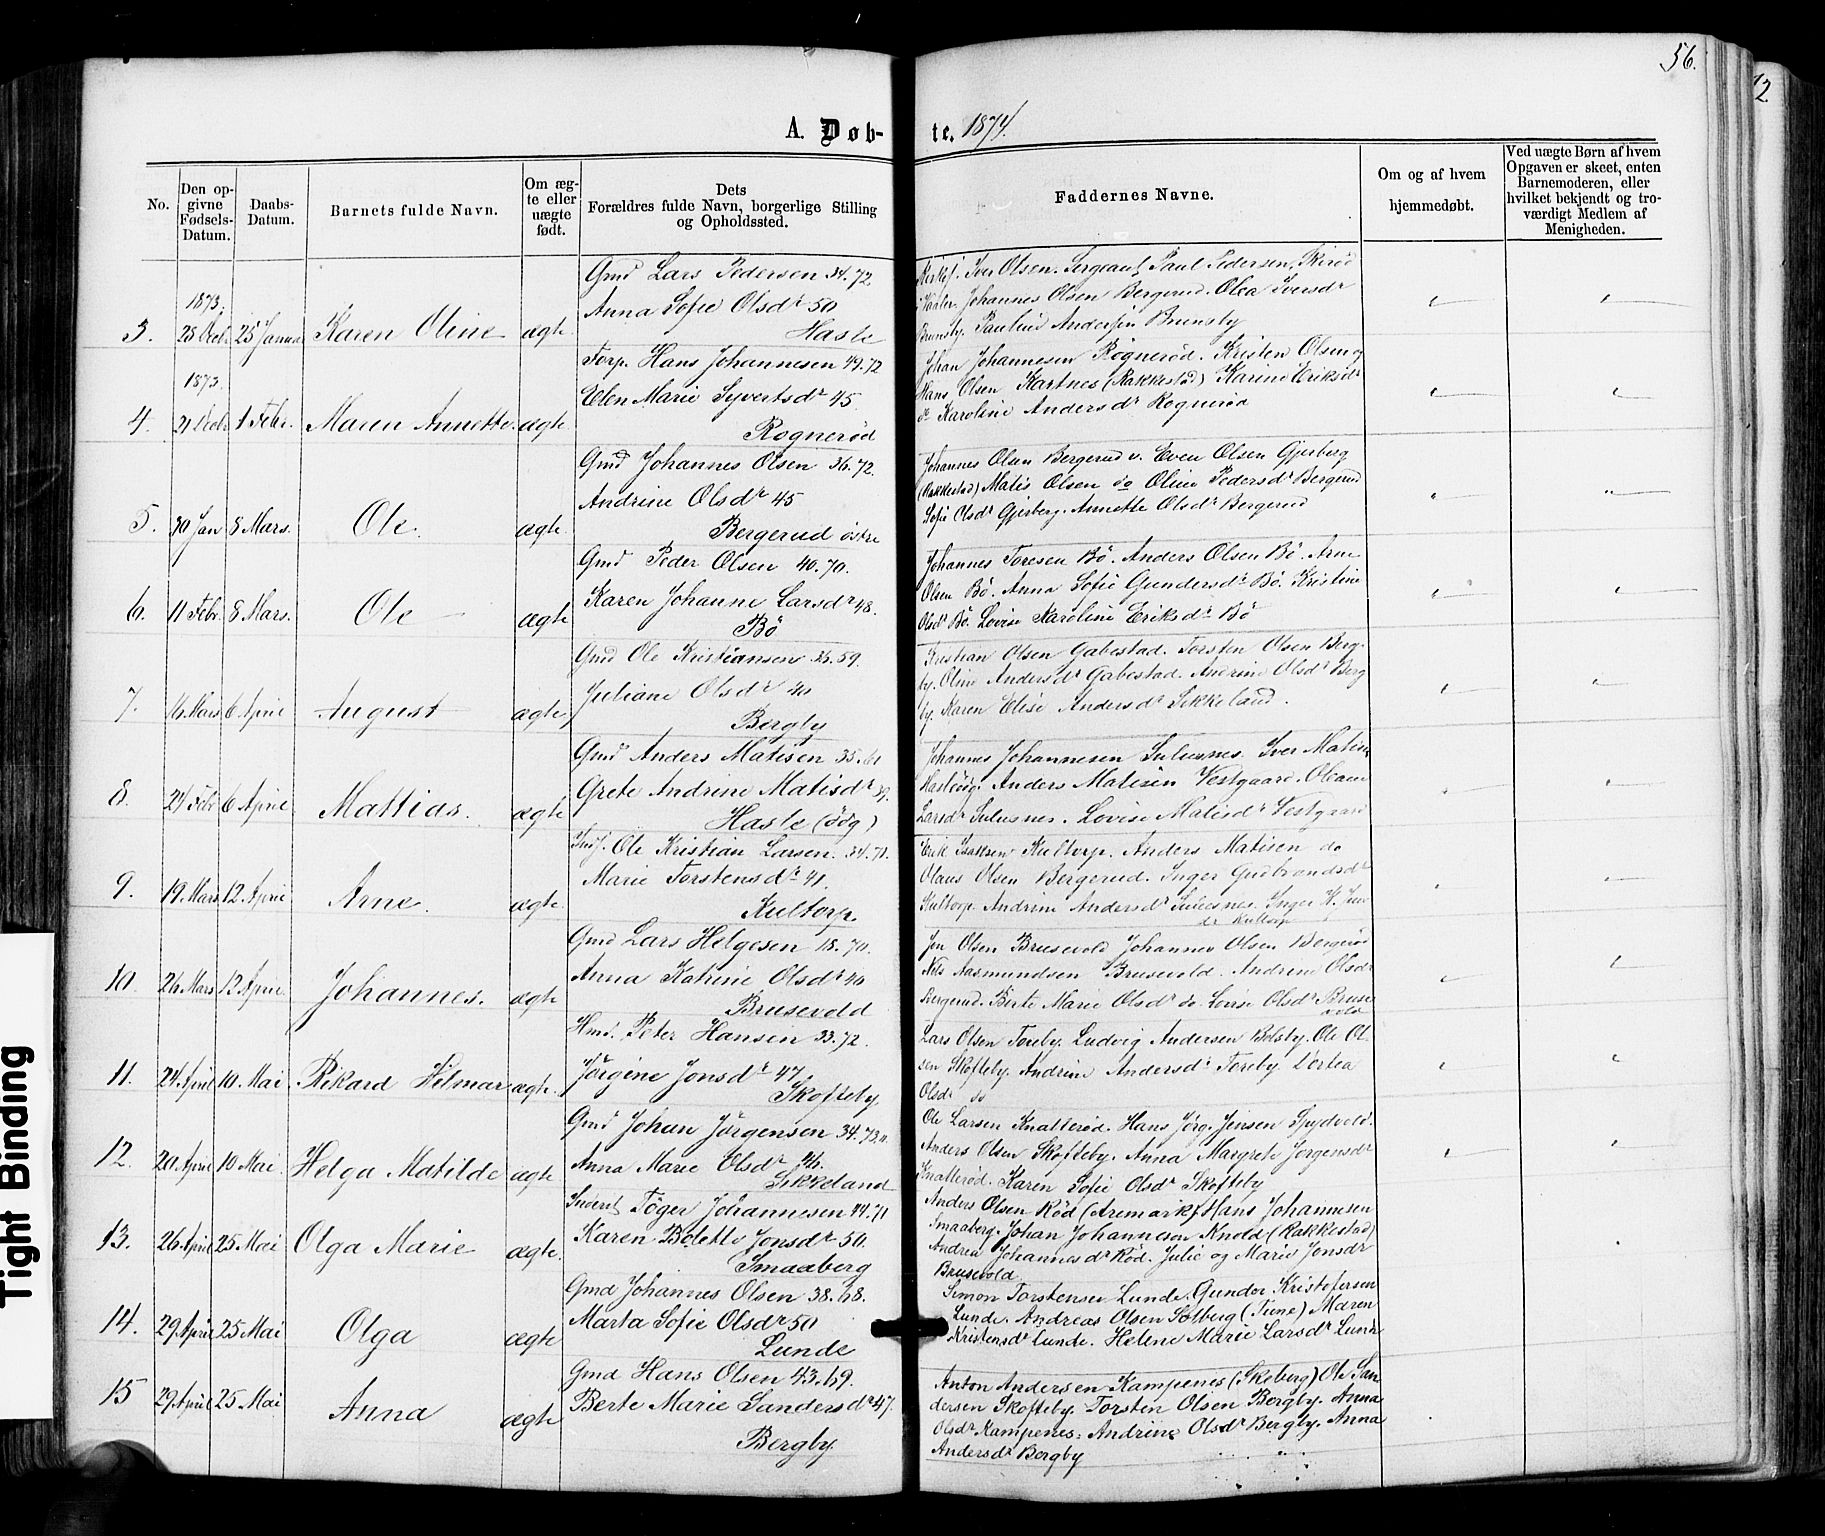 56.
12
A. Døb-
te. 1874.
No.
Den op-
givne
Fødsels-
Datum.
Daabs-
Datum.
Barnets fulde Navn.
Om æg-
te eller
uægte
født.
Dets
Forældres fulde Navn, borgerlige Stilling
og Opholdssted.
Faddernes Navne.
Om og af hvem
hjemmedøbt.
Ved uægte Børn af hvem
Opgaven er skeet, enten
Barnemoderen, eller
hvilket bekjendt og tro-
værdigt Medlem af
Menigheden.
Gmd Lars Pedersen 34.72
1873.
Anna Sofie Olsdr 50
3. 25 Januar Karen Oline ægte Hasle
Iver Olsen. Sergeant Paul Pedersen,
Johannes Olsen Bergerud. Olea Iversdr
Brunsby. Pauline Andersen Brunsby
Torp. Hans Johannesen 49.72
1873.
Elen Marie Syvertsdr 45.
4. 1 Febr. Maren Annette. ægte
Rognerød
Johan Johannesen Rognerød. Kristen Olsen
Hans Olsen Kartnes (Rakkestad) Karine Eriksdr
do Karoline Andersdr Rognerød
Gmd Johannes Olsen 36.72.
Andrine Olsdr 45
5. 30 Jan 8 Mars. Ole. ægte.
Bergerud østre
Johannes Olsen Bergerud v. Even Olsen Gjerberg
(Rakkestad) Matis Olsen do Oline Pedersdr Bergerud
Sofie Olsdr Gjerberg. Annette Olsdr Bergerud
Gmd Peder Olsen 40.70.
Karen Johanne Larsdr 48.
6. 11 Febr. 8 Mars. Ole ægte
Bö
Johannes Toresen Bö. Anders Olsen Bö. Arne
Olsen Bö. Anna Sofie Gundersdr Bö. Kristine
Olsdr Bö. Lovise Karoline Eriksdr Bö
Gmd Ole Kristiansen 36.59.
Juliane Olsdr 40
7. 16 Mars 6 April August ægte
Bergby
Kristian Olsen Gabestad. Torsten Olsen Berg-
by. Oline Andersdr Gabestad. Andrine Olsdr Berg
by. Karen Elise Andersdr Sikkeland.
Gmd Anders Matisen 35.61
Grete Andrine Matisdr 39.
8. 24 Febr 6 April Mattias. ægte
Hasle (ödg)
Johannes Johannesen Sulusnes. Iver Matisen
Anders Matisen Vestgaard. Oleana
Larsdr Sulusnes. Lovise Matisdr Vestgaard
Ole Kristian Larsen. 34.71.
Marie Torstensdr 41.
9. 19. Mars 12 April Arne. ægte.
Kultorp.
Erik Isaksen Kultorp. Anders Matisen do
Olaus Olsen Bergerud. Inger Gudbrandsdr
Kultorp. Andrine Andersdr Sulusnes. Inger
Kultorp
Gmd Lars Helgesen 18.70.
Anna Katrine Olsdr 40
10. 26 Mars 12 April. Johannes. ægte
Brusevold
Jon Olsen Brusevold Johannes Olsen Bergerud
Nils Aasmundsen Brusevold. Andrine Olsdr
Bergerud. Berte Marie Olsdr do. Lovise Olsdr Bruse
vold
Hmd. Peter Hansen 33.72.
Jörgine Jonsdr 47.
11. 24 April 10 Mai Rikard Hilmar ægte.
Skofteby
Lars Olsen Toreby. Ludvig Andersen Bolsby. Ole Ol-
sen Skofteby. Andrine Andersdr Toreby. Dortea
Olsdr do
Gmd Johan Jörgensen 34.73
Anna Marie Olsdr 46.
12. 20 April 10 Mai. Helga Matilde ægte
Sikkeland
Ole Larsen Knatteröd. Hans Jörg. Jensen Spydvold.
Anders Olsen Skofteby. Anna Margrete Jorgensdr
Knatteröd. Karen Sofie Olsdr Skofteby
Töger Johannesen 44.71
Karen Bolette Jonsdr 50.
13. 26 April 25 Mai Olga Marie ægte.
Smaaberg
Anders Olsen Röd (Aremark) Hans Johannesen
Smaaberg. Johan Johannesen Knold (Rakkestad)
Andrea Johannesdr Röd. Julie og Marie Jonsdr
Brusevold
Gmd Johannes Olsen 38.68.
Marta Sofie Olsdr 50
14. 29 April 25 Mai Olga ægte
Lunde
Simon Torstensen Lunde. Gunder Kristofersen
Lunde. Andreas Olsen Solberg (Tune) Maren
Kristensdr Lunde. Helene Marie Larsdr Lunde
Gmd Hans Olsen 43.69.
Berte Marie Sandersdr 47.
15 29 April 25 Mai Anna ægte
Bergby
Anton Andersen Kampenes (Skeberg) Ole San-
dersen Skofteby. Torsten Olsen Bergby. Anna
Olsdr Kampenes. Andrine Olsdr Bergby. Anna
Andersdr Bergby
Tight Binding